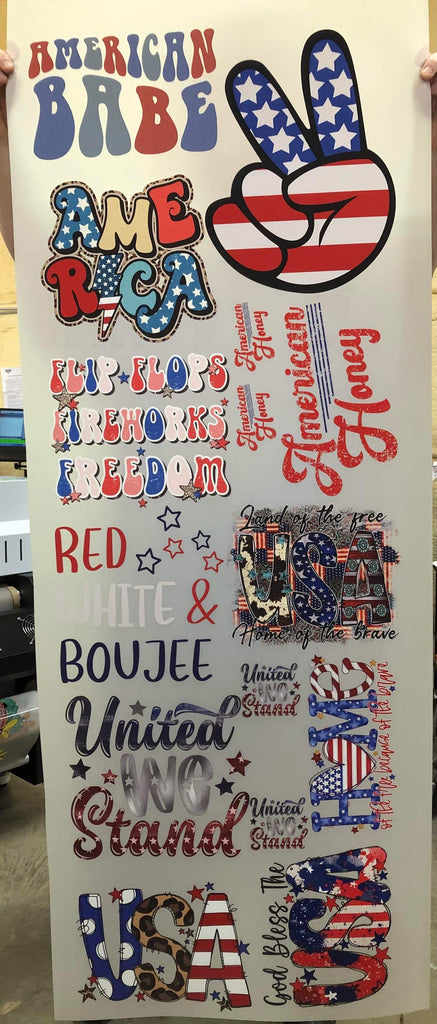 AMERICAN
BABE
AME
RICA
American
Honey
American
Honey
American
Honey
FLIP FLOPS
FIREWORKS
FREEDOM
RED
WHITE &
BOUJEE
Land of the free
USA
Home of the brave
United
We
Stand
United
We
Stand
United
We
Stand
HOME
of the free because of the brave
USA
God Bless The
USA